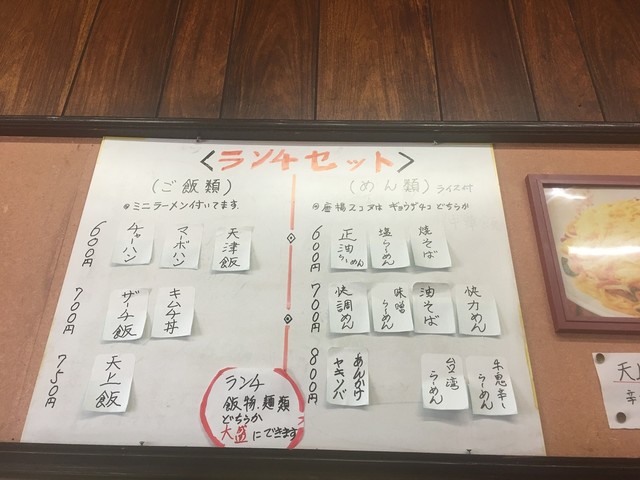 <ランチセット>
(ご飯類)
◉ミニラーメン付いてます
600円
チャーハン
マーボハン
天津飯
700円
ザーチ飯
キムチ丼
750円
天上飯
(めん類)ライス付
◉唐揚2コ又は ギョウザ4コ どちらか
600円
正油らーめん
塩らーめん
焼そば
700円
快調めん
味噌らーめん
油そば
快力めん
800円
あんかけヤキソバ
台湾らーめん
らーめん
ランチ
飯物、麺類
どちらか
大盛にできます
天
辛